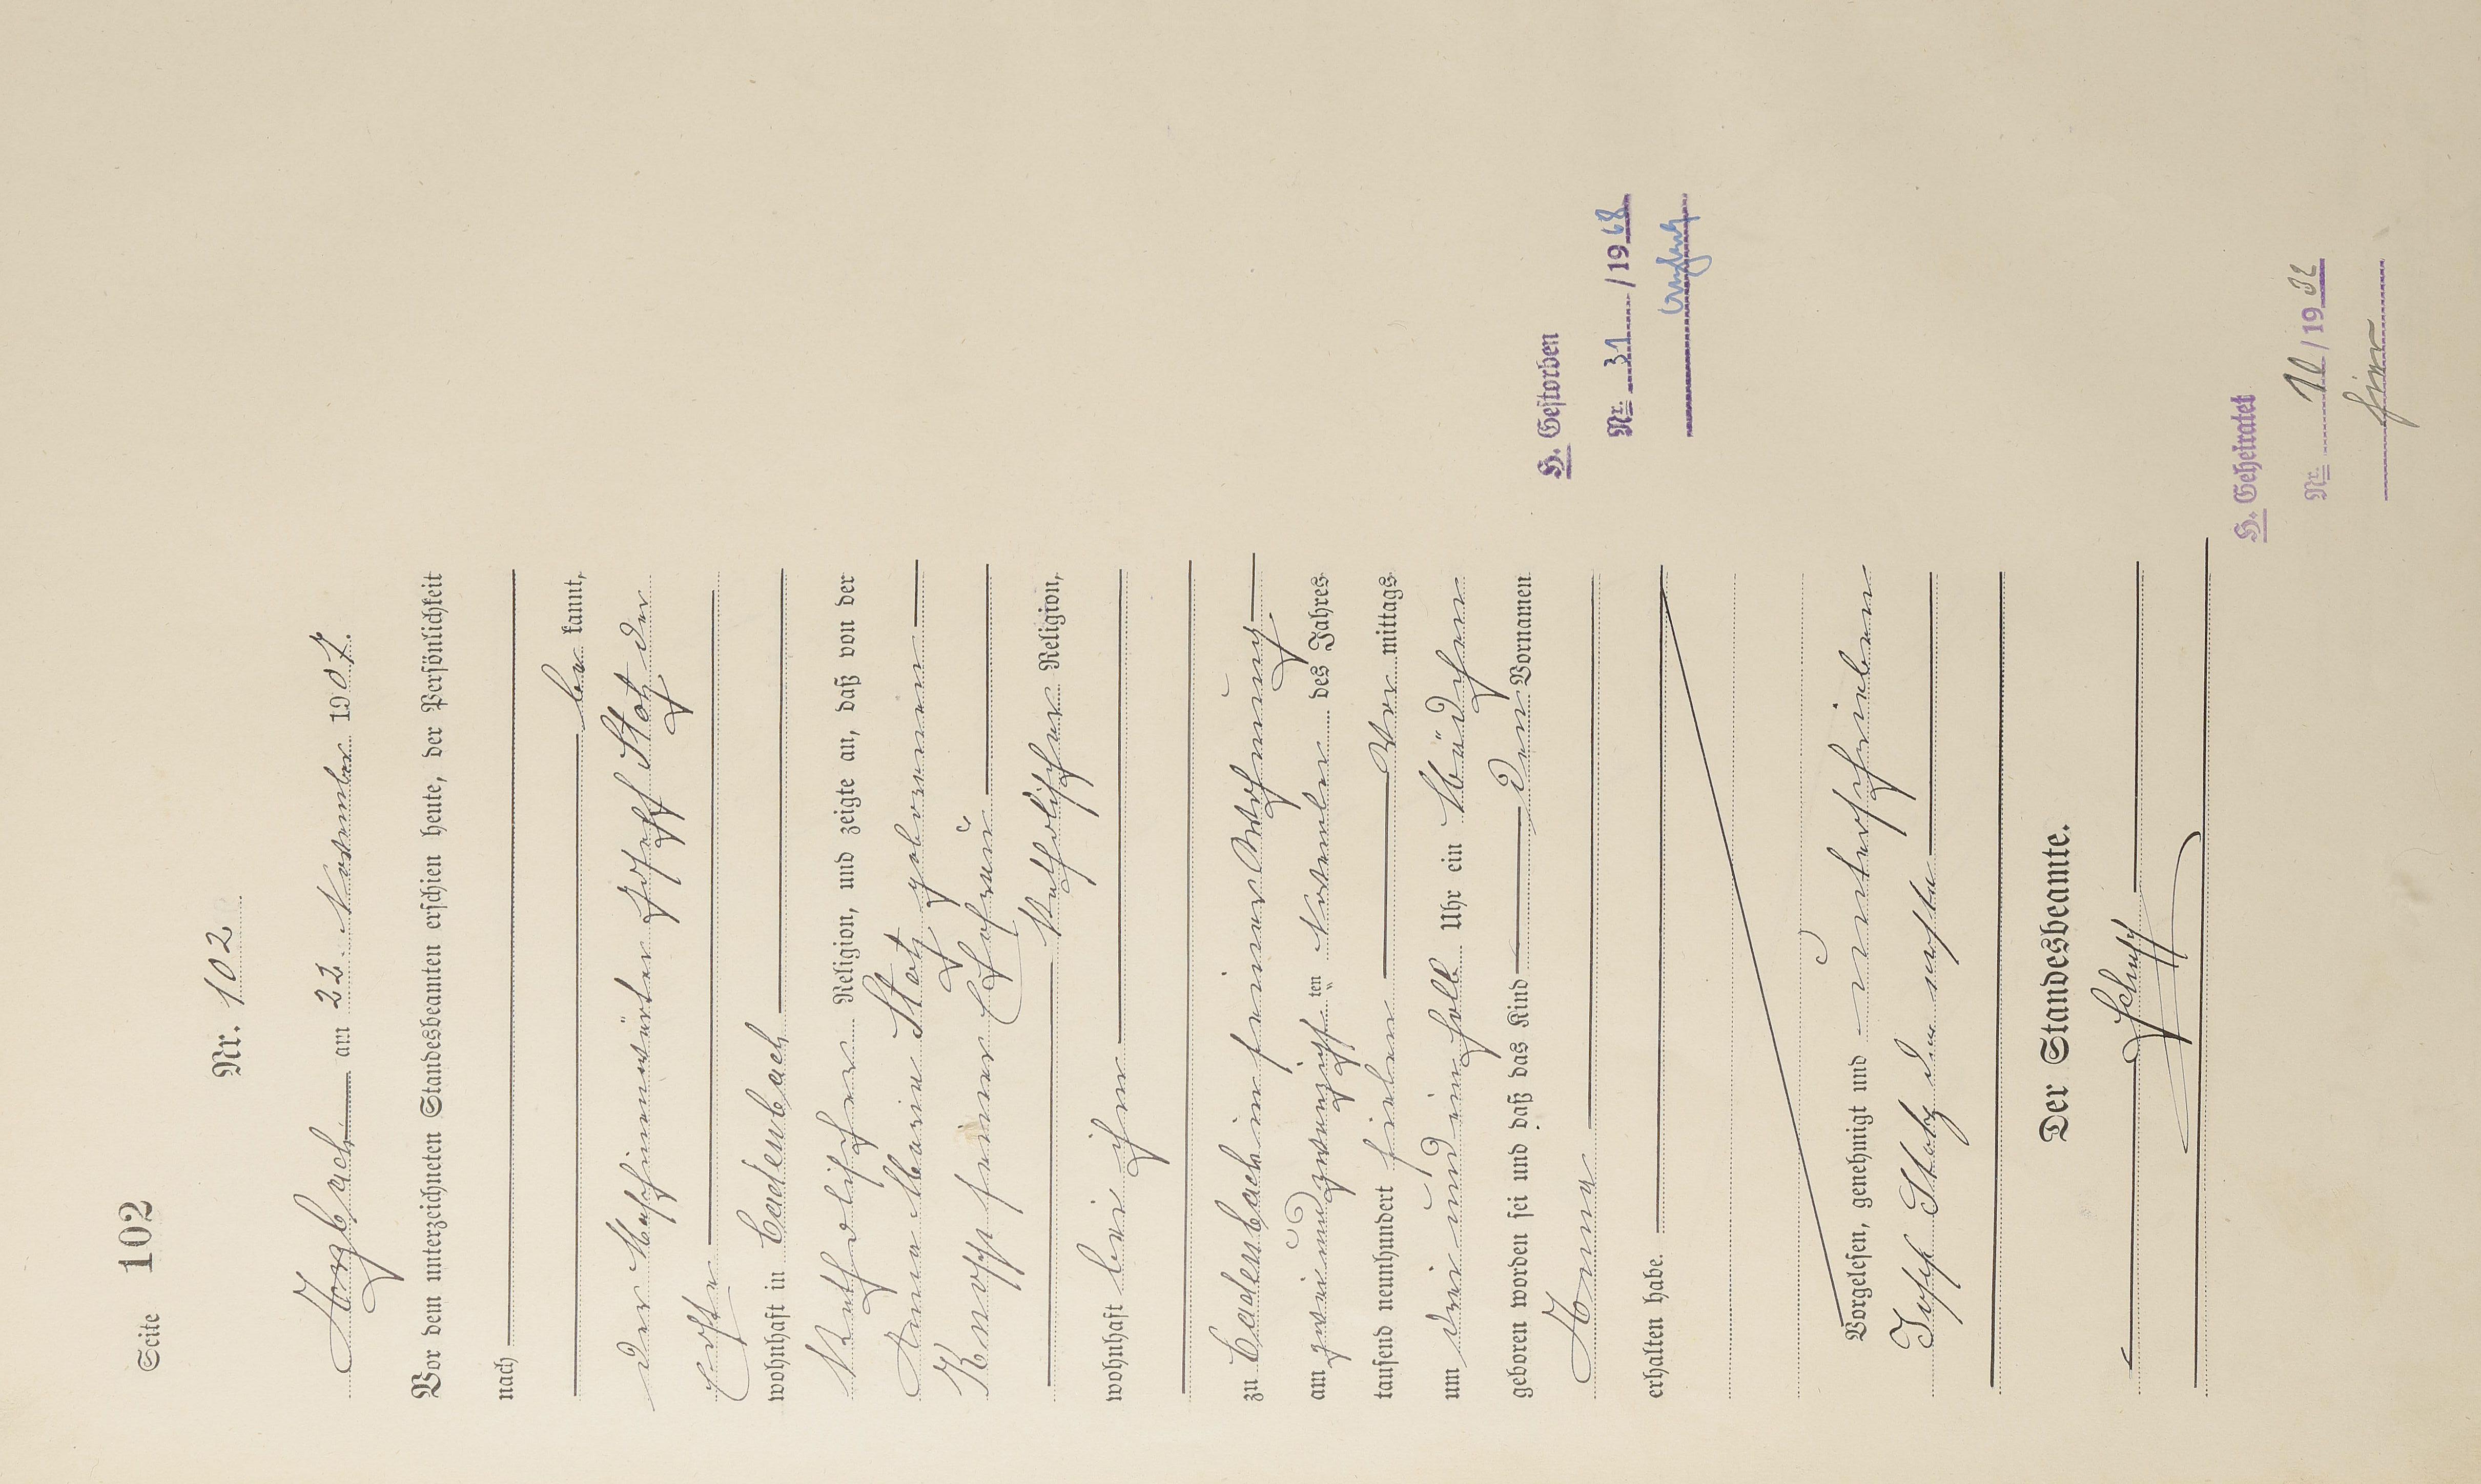 Seite 102
Nr. 102
am 22. November 1907.
Vor dem unterzeichneten Standesbeamten erschien heute, der Persönlichkeit
nach
be kannt,
der Maschinenwärter Joseph Statz der
Erste
wohnhaft in Cadenbach
katholischer Religion, und zeigte an, daß von der
Anna Maria Statz geborenen
Knopp seiner Ehefrau
katholischer Religion,
wohnhaft bei ihm
zu Cadenbach in seiner Wohnung
am zweiundzwanzigsten November des Jahres
tausend neunhundert sieben Vor mittags
um drei und ein halb Uhr ein Mädchen
geboren worden sei und daß das Kind den Vornamen
Anna
erhalten habe.
Vorgelesen, genehmigt und unterschrieben
Josef Statz der erste
Der Standesbeamte.
H. Gestorben
Nr. 31 /1968
H. Geheiratet
Nr. 10 /1932